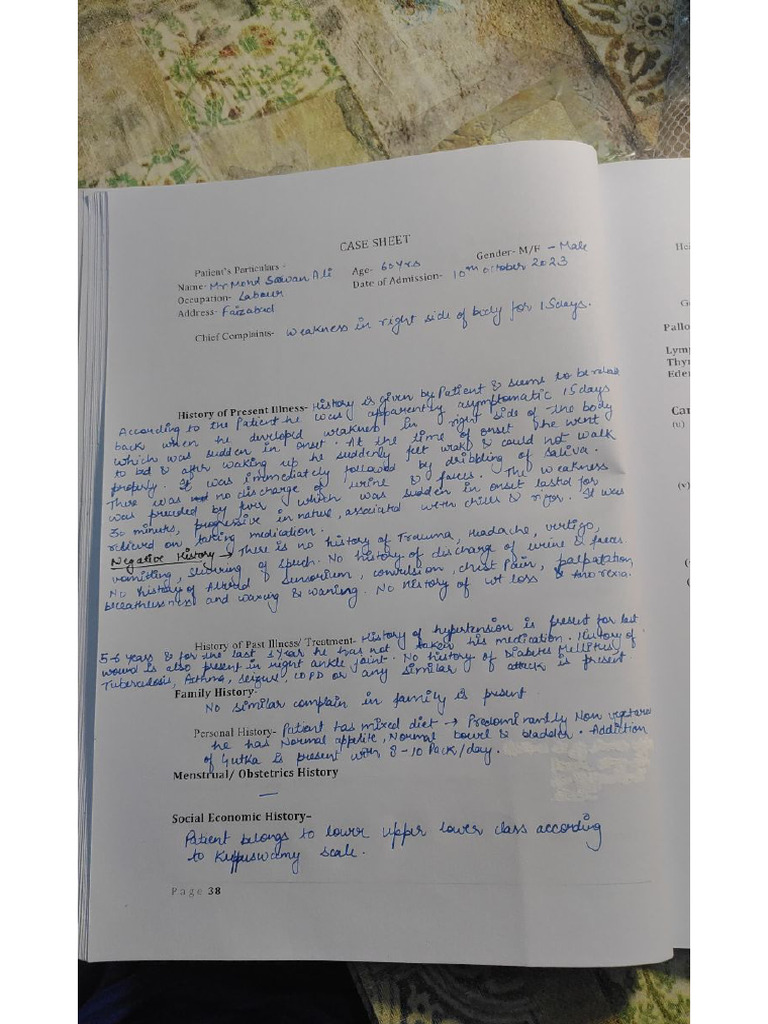 CASE SHEET
Patient's Particulars -
Gender- M/F - Male
Name- Mr Mohd Sawan Ali Age- 60 Yrs
Occupation- Labour Date of Admission- 10th October 2023
Address- Faizabad
Chief Complaints- Weakness in right side of body for 15days.
History of Present Illness- History is given by Patient & seems to be
According to the Patient he was apparently asymptomatic 15 days
back when he developed weakness in right side of the body
which was sudden in onset. At the time of onset he went
to bed & after waking up he suddenly felt weak & could not walk
properly. It was immediately followed by dribbling of saliva.
There was no discharge of urine & faeces. The weakness
was preceded by fever which was sudden in onset lasted for
30 minutes, progressive in nature, associated with chills & rigor. It was
relieved on taking medication.
Negative History → There is no history of Trauma, Headache, vertigo,
vomitting, slurring of speech. No history of discharge of urine & faeces.
No history of Altered sensorium, convulsion, chest Pain, palpatation,
breathlessness and waxing & waning. No History of wt loss & Anorexia.
History of Past Illness/ Treatment- History of hypertension is present for last
5-6 years & for the last 1 Year he has not taken his medication. History of
wound is also present in right ankle joint. No history of Diabetes Mellitus,
Tuberculosis, Asthma, seizure, COPD or any similar attack is present.
Family History-
No similar complain in family is present
Personal History- Patient has mixed diet → Predominantly Non vegetarian
he has Normal appetite, Normal bowel & bladder. Addiction
of Gutka is present with 8-10 Pack/day.
Menstrual/ Obstetrics History
—
Social Economic History-
Patient belongs to lower upper lower class according
to Kuppuswamy scale.
Page 38
Pallo
Lym
Thyr
Ede
Car
(v)